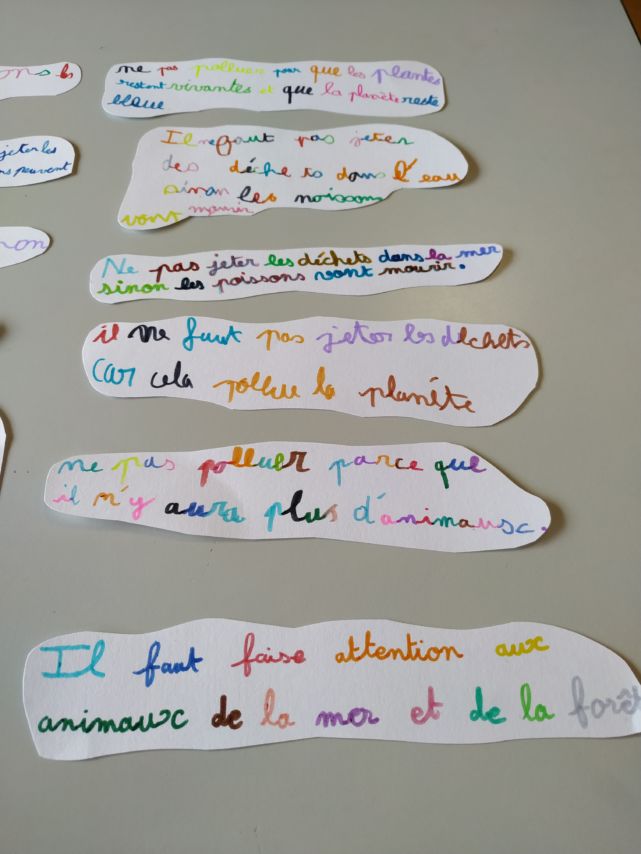 ons les
jeter les
ns peuvent
non
ne pas polluer pour que les plantes
restent vivantes et que la planète reste
bleue
Il ne faut pas jeter
des déchets dans l'eau
sinon les poissons
vont mourir.
Ne pas jeter les déchets dans la mer
sinon les poissons vont mourir.
il ne faut pas jeter les déchets
car cela pollue la planéte
ne pas polluer parce que
il n'y aura plus d'animausc.
Il faut faise attention aux
animaux de la mer et de la forêt